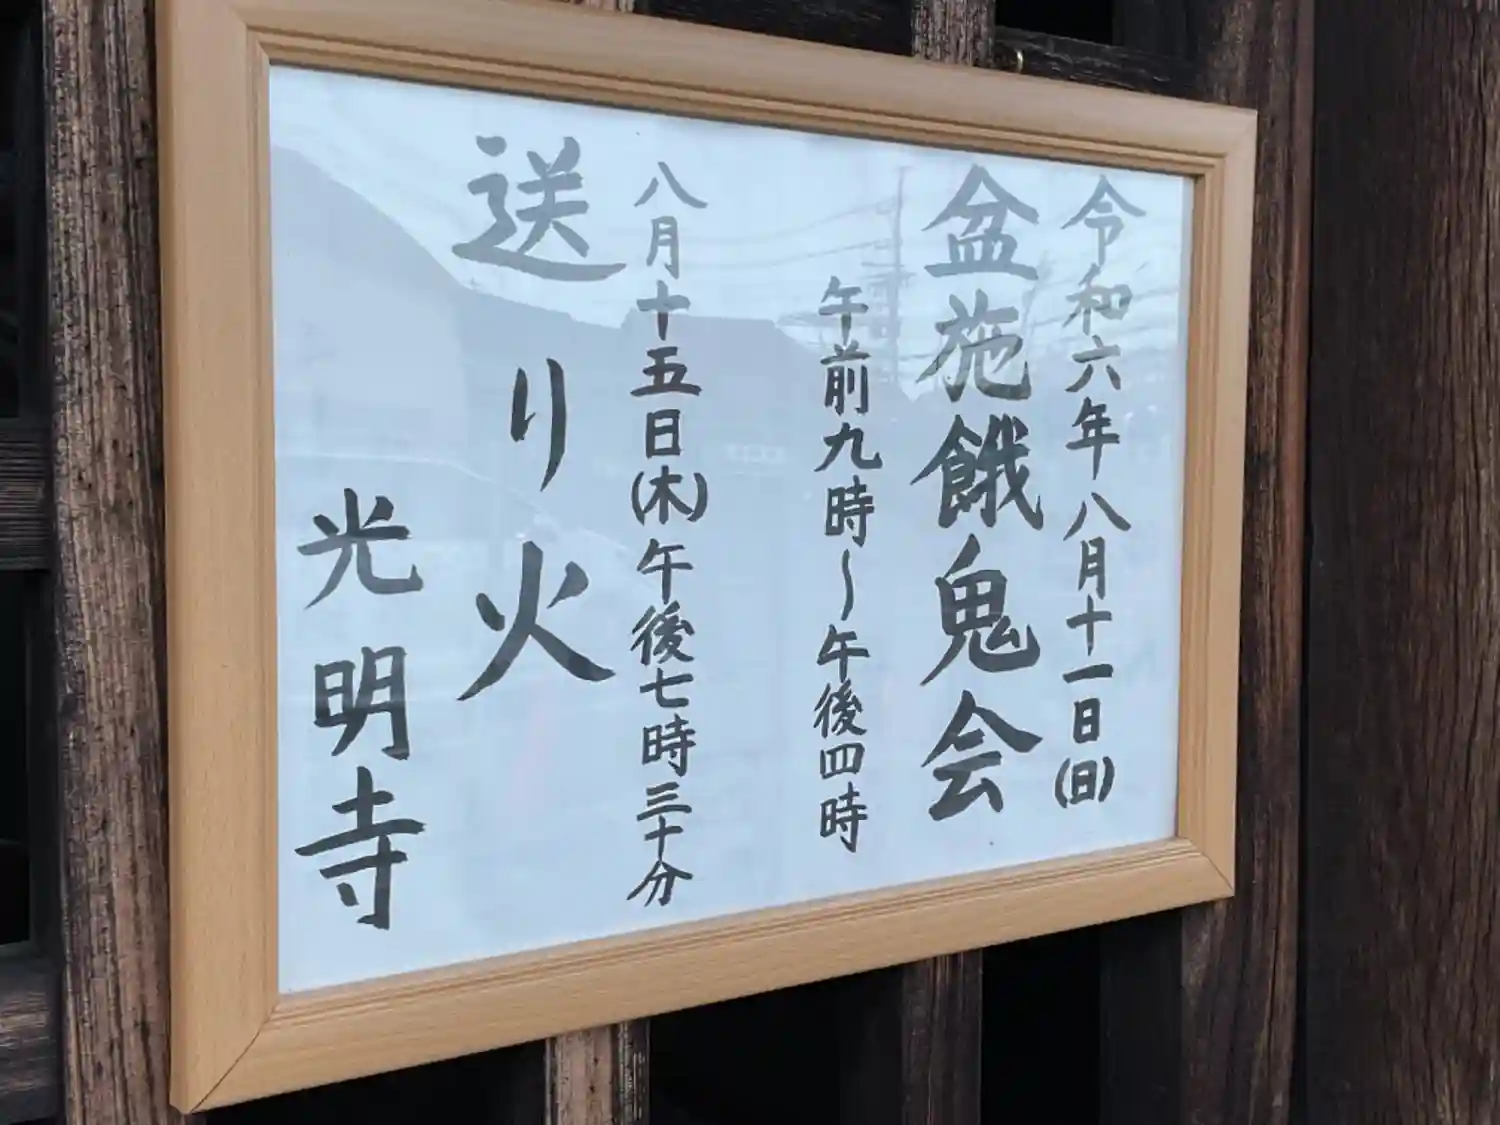 令和六年八月十一日(日)
盆施餓鬼会
午前九時～午後四時
八月十五日(木)午後七時三十分
送り火
光明寺